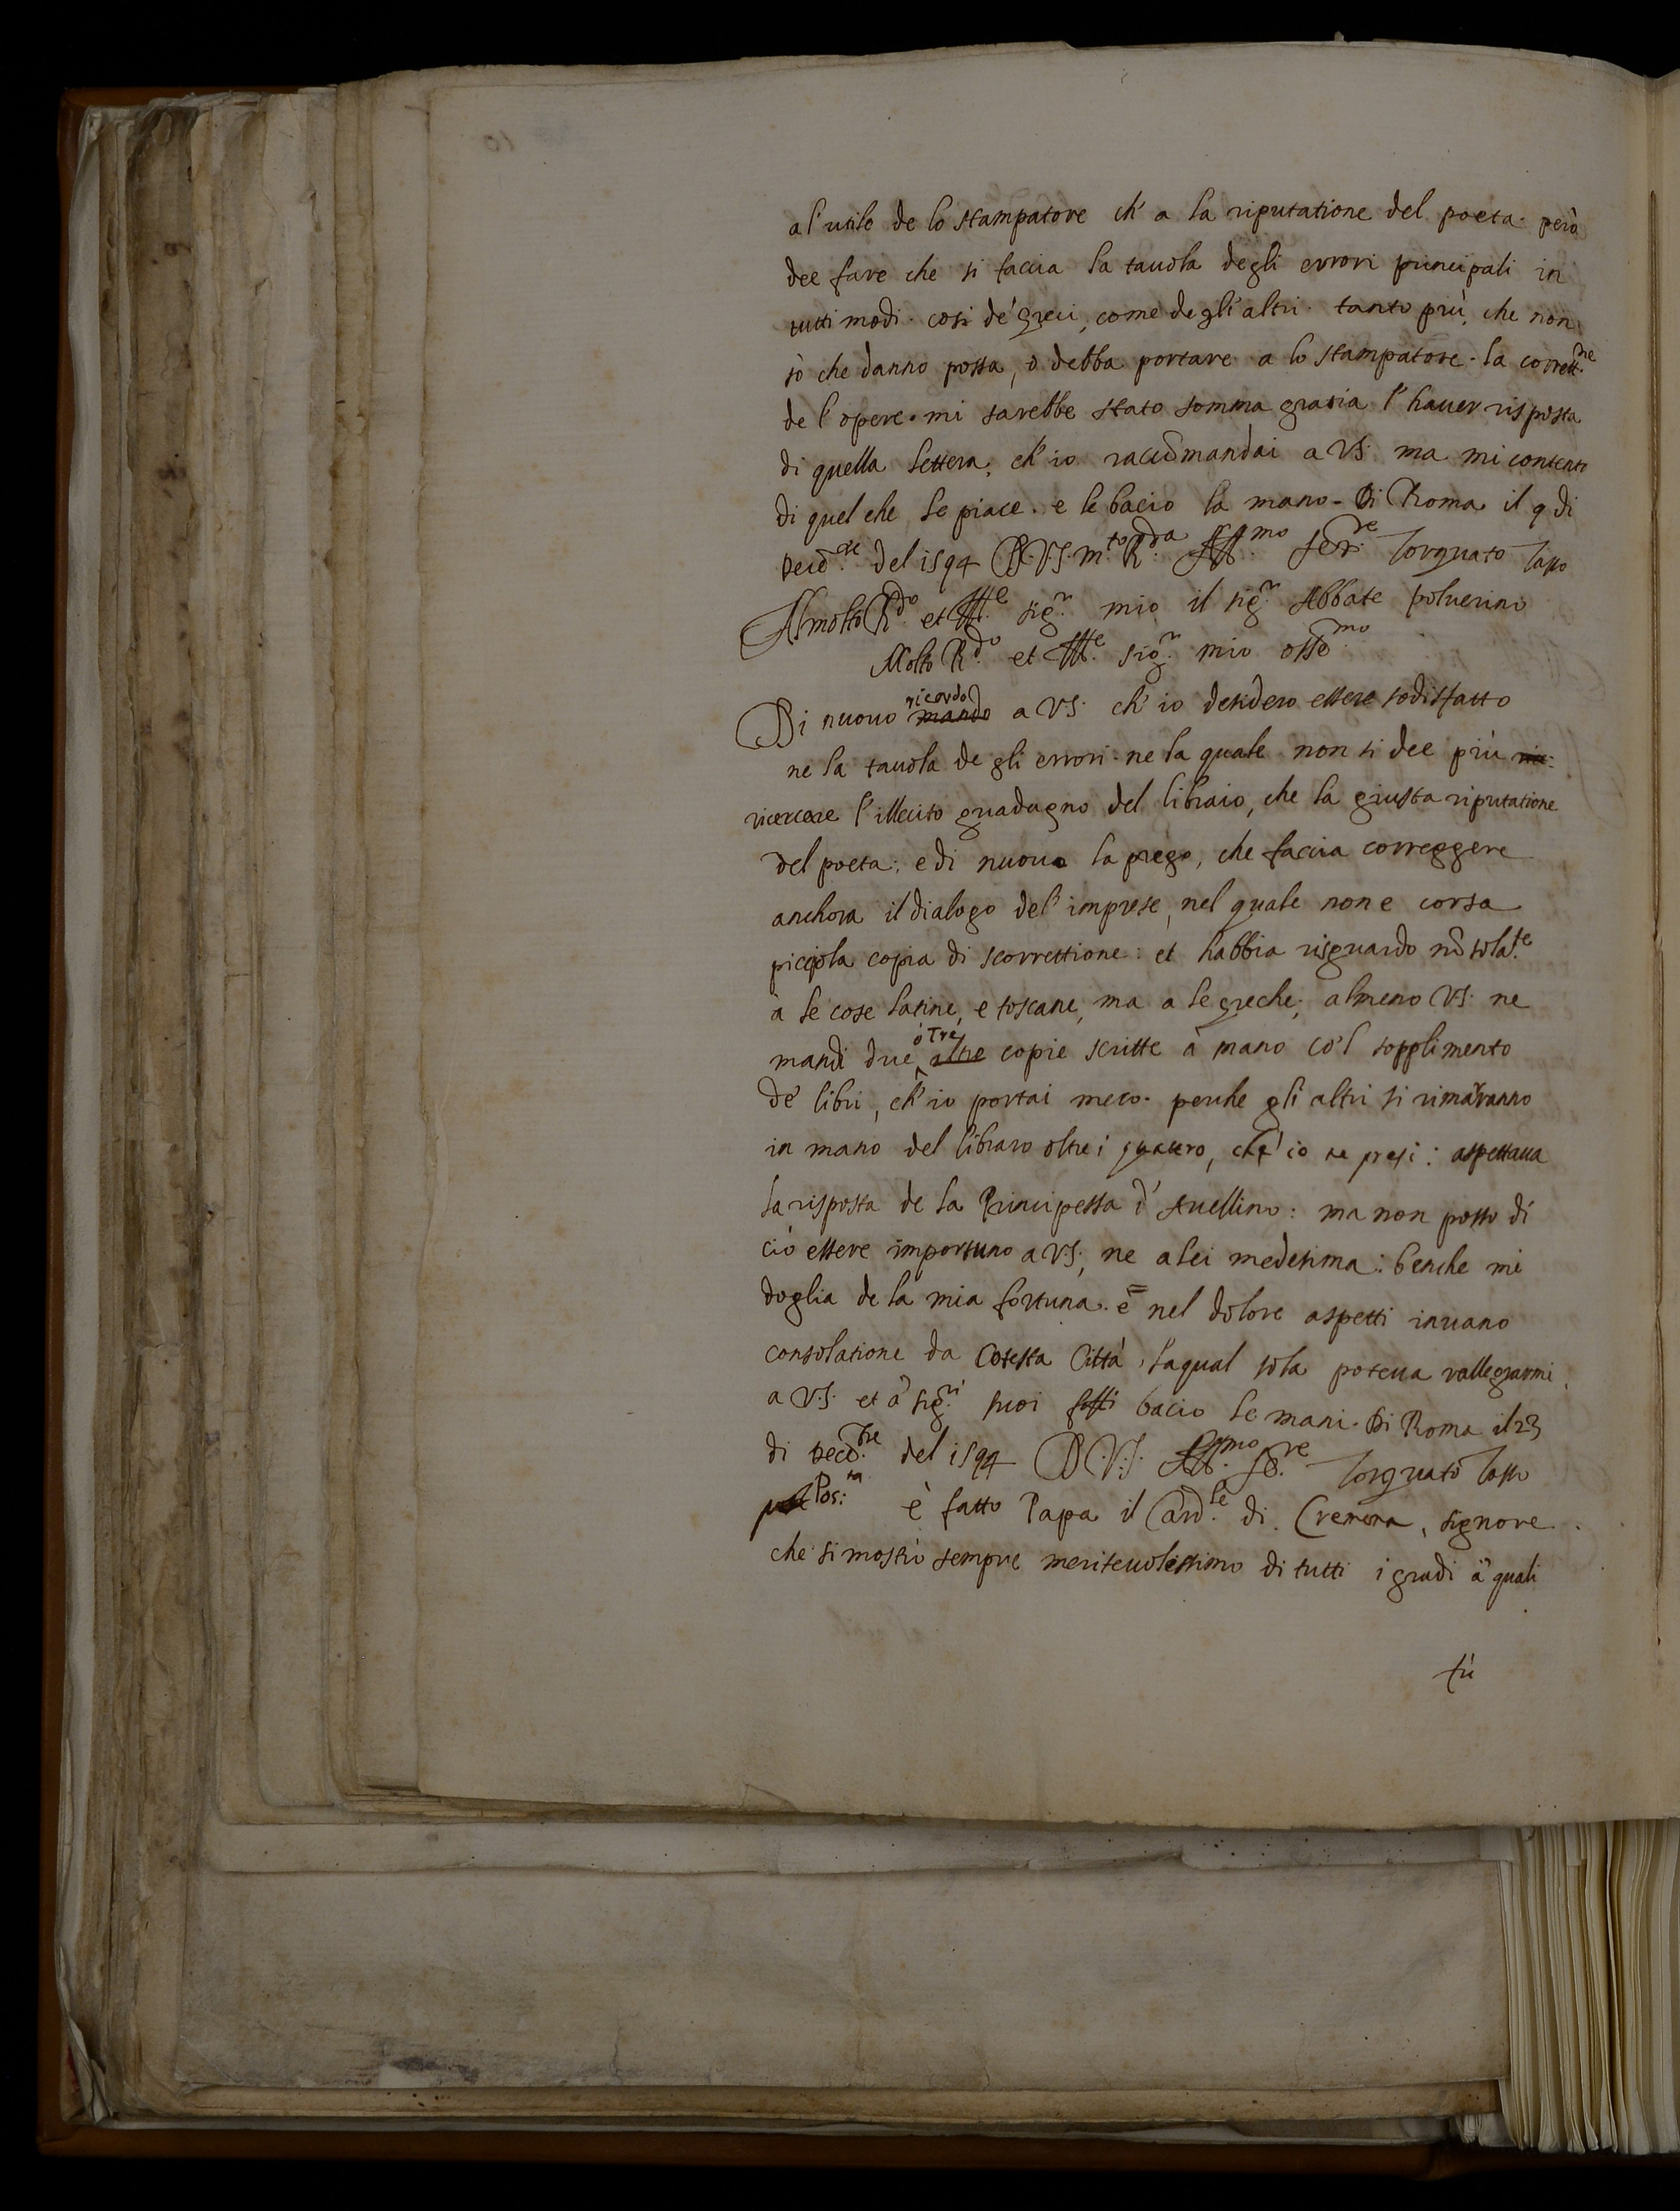 al'utile de lo stampatore ch' a la riputatione del poeta. però
dee fare che si faccia la tauola degli errori principali in
tutti modi. così de' greci, come degl'altri. tanto più, che non
sò che danno possa, ò debba portare a lo stampatore. la corrett.ne
de l'opere. mi sarebbe stato somma gratia l'hauer risposta
di quella lettera, ch'io raccõmandai a VS. ma mi contento
di quel che le piace. e le bacio la mano. Di Roma il 9 di
Decẽ.re del 1594 D.V.S. m.to R.da Aff.mo Ser.re Torquato Tasso
Al molto R.do et Ill.e sig.r mio il sig.r Abbate poluerino
Molto R.do et Ill.e sig.r mio oss.mo
ricordo
Di nuouo mando a VS. ch'io desidero essere sodisfatto
ne la tauola de gli errori. ne la quale non si dee più
ricercare l'illecito guadagno del libraio, che la giusta riputatione
del poeta: e di nuouo la prego, che faccia correggere
anchora il dialogo del'imprese, nel quale non e corsa
picciola copia di scorrettione: et habbia risguardo nõ sola.te
à le cose latine, e toscane, ma a le greche; almeno VS. ne
ò tre
mandi due altre copie scritte à mano co'l sopplimento
de' libri, ch'io portai meco. perche gli altri si rimarranno
in mano del libraro oltre i quattro, che io ne presi: aspettaua
la risposta de la Principessa d'Auellino: ma non posso di
ciò essere importuno a V.S., ne a lei medesima: benche mi
doglia de la mia fortuna. e nel dolore aspetti inuano
consolatione da Cotesta Città, laqual sola poteua rallegrarmi,
a V.S. et a' sig.ri suoi bacio le mani. Di Roma il 23
di Decẽ.bre del 1594 D.V.S. Aff.mo Se.re Torquato Tasso
Pos:ta è fatto Papa il Card.le di Cremona, signore
che si mostrò sempre meriteuolissimo di tutti i gradi a' quali
fù